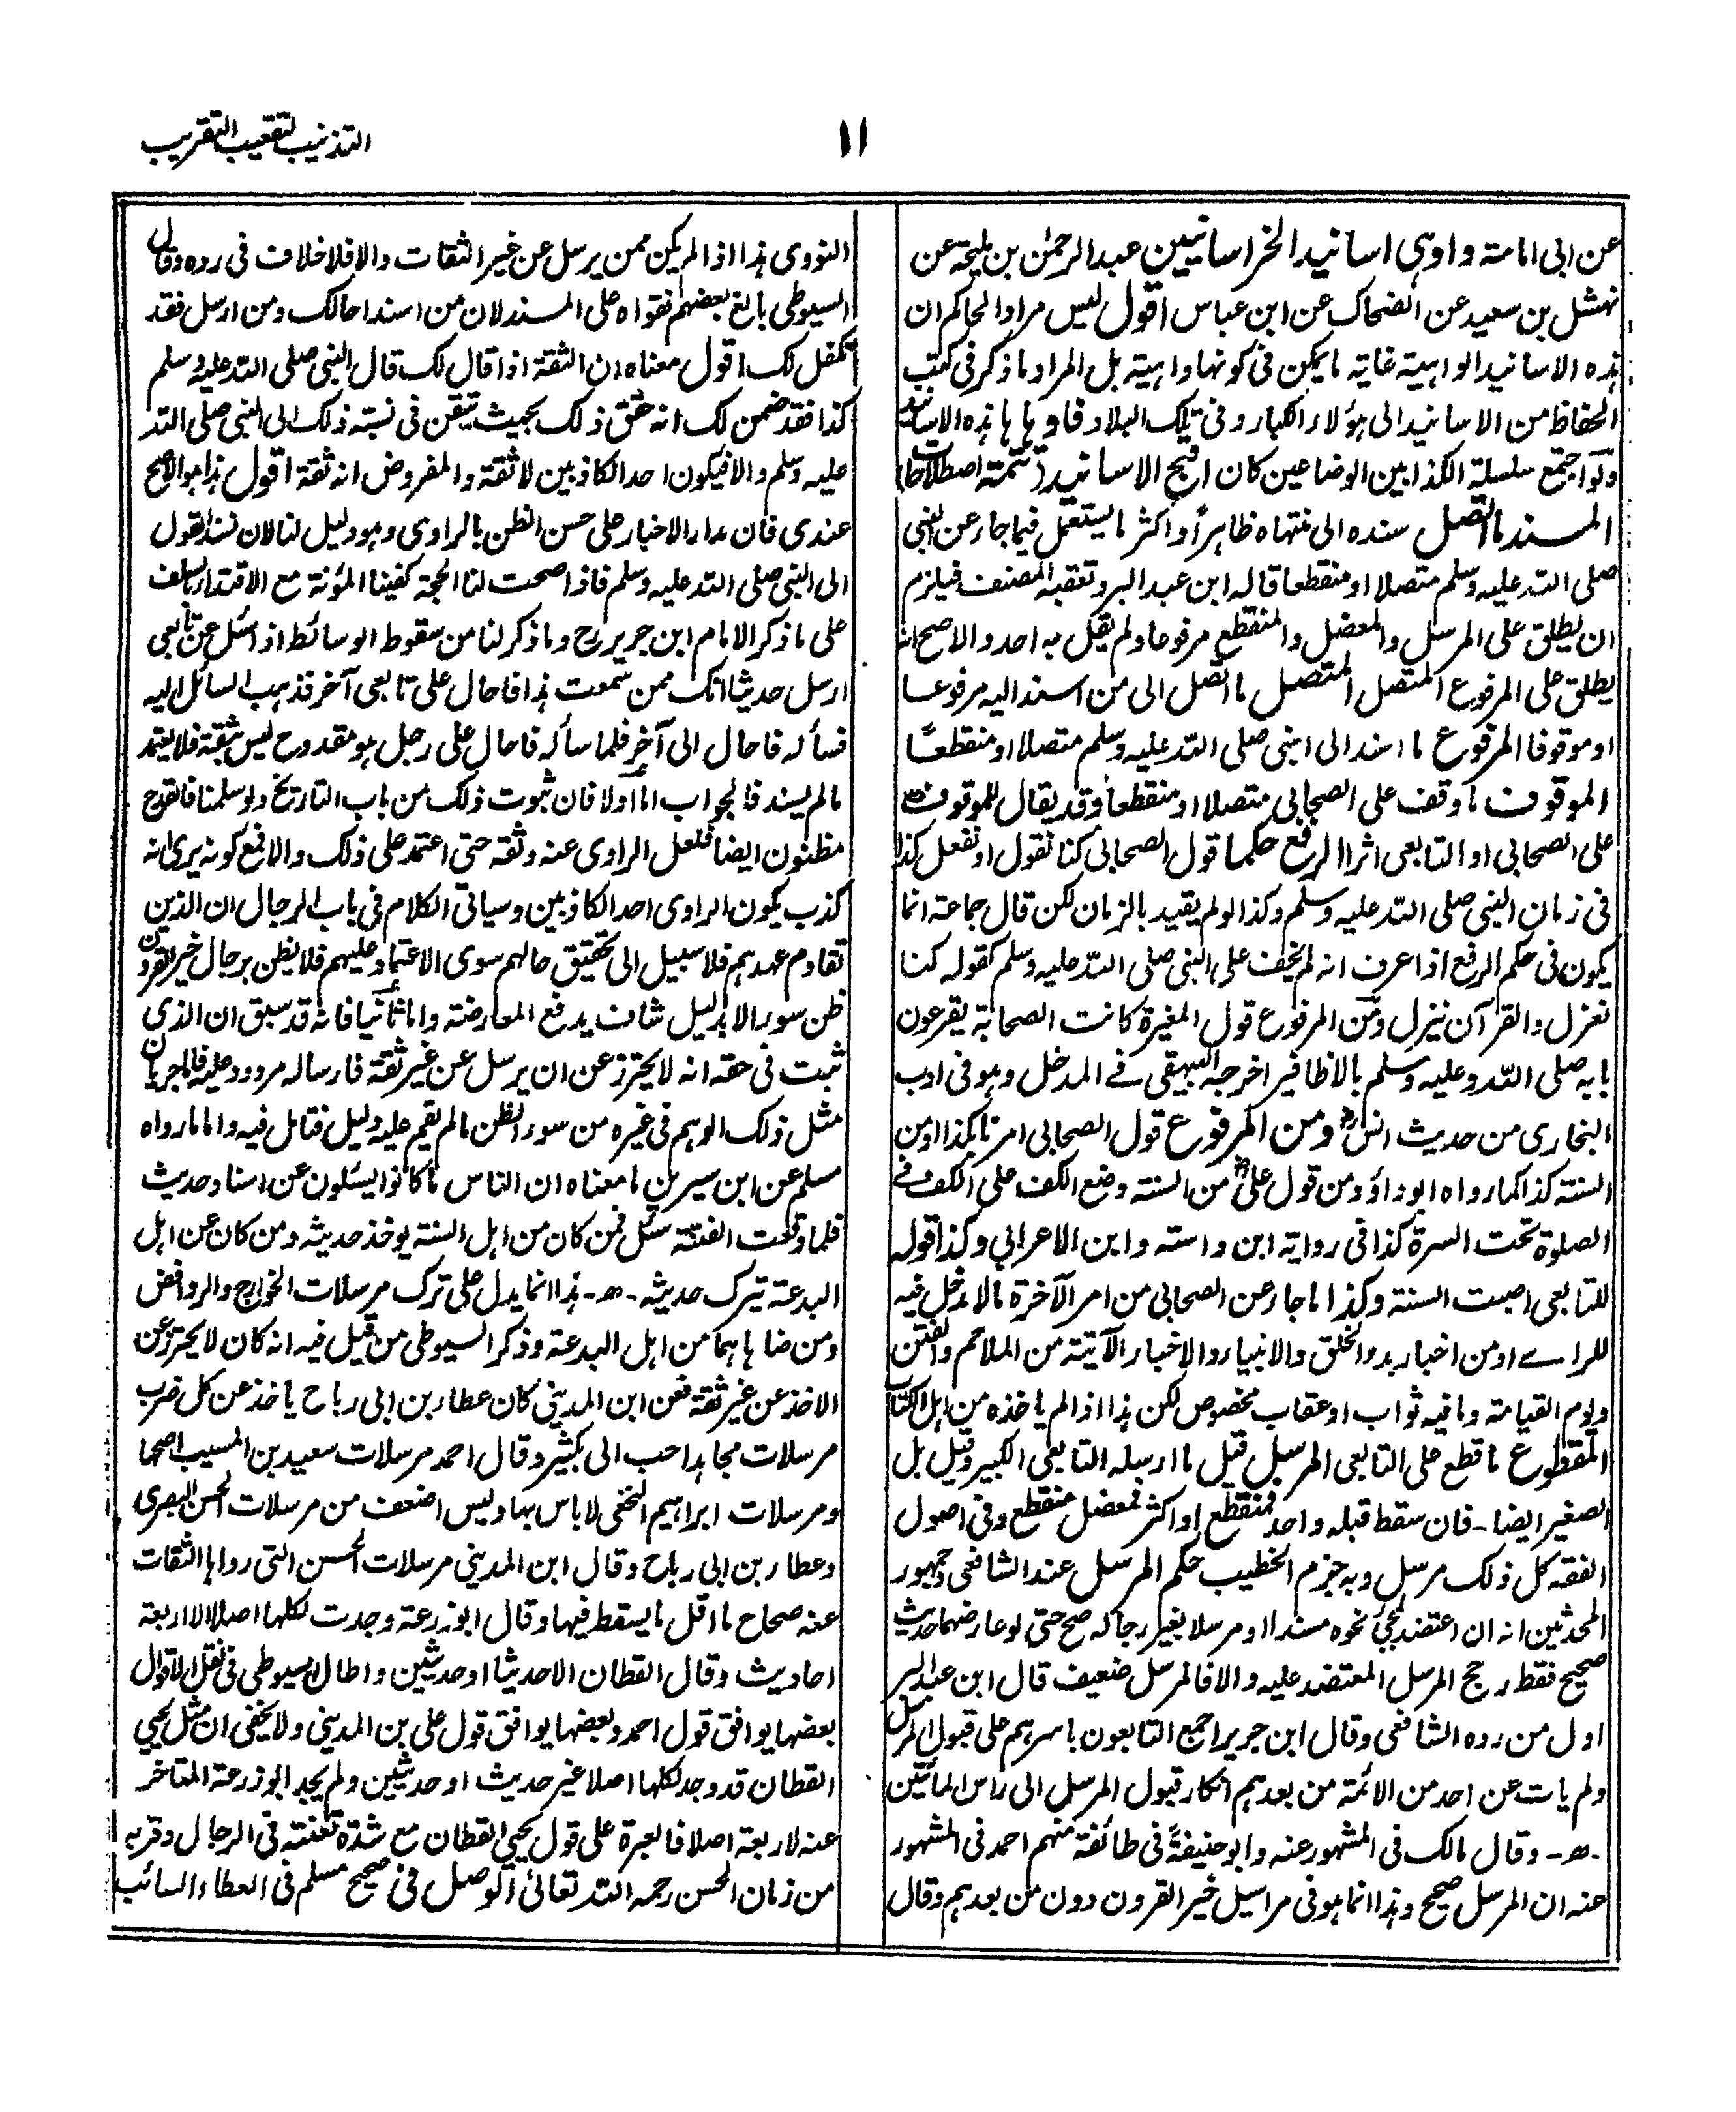 التذنيب لتعقيب التقريب
١١
عن ابى امامة واوهى اسانيد الخراسانيين عبد الرحمٰن بن مليحة عن
نهشل بن سعيد عن الضحاك عن ابن عباس اقول ليس مراد الحاكم ان
هذه الاسانيد الواهية غاية ما يمكن فى كونها واهية بل المراد ما ذكر فى كتب
الحفاظ من الاسانيد الى هؤلاء الكبار وفى تلك البلاد فاوهاها هذه الاسانيد
ولو اجتمع سلسلة الكذابين الوضاعين كان اقبح الاسانيد (تتمة اصطلاحا)
المسند ما اتصل سنده الى منتهاه ظاهراً واكثر ما يستعمل فيما جاء عن النبى
صلى الله عليه وسلم متصلا او منقطعا قاله ابن عبد البر وتعقبه المصنف فيلزم
ان يطلق على المرسل والمعضل والمنقطع مرفوعا ولم يقل به احد والاصح انه
يطلق على المرفوع المتصل المتصل ما اتصل الى من اسند اليه مرفوعا
او موقوفا المرفوع ما اسند الى النبى صلى الله عليه وسلم متصلا او منقطعاً
الموقوف ما وقف على الصحابى متصلا او منقطعا وقد يقال للموقوف
على الصحابى او التابعى اثرا الرفع حكما قول الصحابى كنا نقول او نفعل كذا
فى زمان النبى صلى الله عليه وسلم وكذا لو لم يقيد بالزمان لكن قال جماعة انما
يكون فى حكم الرفع اذا عرف انه لم يخف على النبى صلى الله عليه وسلم كقوله كنا
نعزل والقرآن ينزل ومن المرفوع قول المغيرة كانت الصحابة يقرعون
بابه صلى الله وعليه وسلم بالاظافير اخرجه البيهقى فے المدخل وهو فى ادب
البخارى من حديث انس رض ومن المرفوع قول الصحابى امرنا بكذا او من
السنة كذا كما رواه ابو داؤد من قول على رض من السنة وضع الكف على الكف فے
الصلوة تحت السرة كذا فى رواية ابن داسته وابن الاعرابى وكذا قوله
للتابعى اصبت السنة وكذا ما جاء عن الصحابى من امر الآخرة مالا دخل فيه
للراے او من اخبار بدو الخلق والانبياء والاخبار الآتية من الملاحم والفتن
ويوم القيامة وما فيه ثواب او عقاب مخصوص لكن هذا اذا لم ياخذه من اهل الكتاب
المقطوع ما قطع على التابعى المرسل قيل ما ارسله التابعى الكبير وقيل بل
الصغير ايضا - فان سقط قبله واحد فمنقطع او اكثر فمعضل منقطع وفى اصول
الفقه كل ذلك مرسل وبه جزم الخطيب حكم المرسل عند الشافعى وجمهور
المحدثين انه ان اعتضد بمجئ نحوه مسندا او مرسلا بغير رجاله صح حتى لو عارضهما حديث
صحيح فقط رجح المرسل المعتضد عليه والا فالمرسل ضعيف قال ابن عبد البر
اول من رده الشافعى وقال ابن جرير اجمع التابعون باسرهم على قبول المرسل
ولم يات عن احد من الائمة من بعدهم انكار قبول المرسل الى راس المائتين
- ھ - وقال مالك فى المشهور عنه وابو حنيفة فى طائفة منهم احمد فى المشهور
عنه ان المرسل صحيح وهذا انما هو فى مراسيل خير القرون دون من بعدهم وقال
النووى هذا اذا لم يكن ممن يرسل عن غير الثقات والا فلا خلاف فى رده وقال
السيوطى بالغ بعضهم فقواه على المسند لان من اسند احالك ومن ارسل فقد
تكفل لك اقول معناه ان الثقة اذا قال لك قال النبى صلى الله عليه وسلم
كذا فقد ضمن لك انه حقق ذلك بحيث تيقن فى نسبة ذلك الى النبى صلى الله
عليه وسلم والا فيكون احد الكاذبين لا ثقة والمفروض انه ثقة اقول هذا هو الاصح
عندى فان مدار الاخبار على حسن الظن بالراوى وهو دليل لنا لان نسند القول
الى النبى صلى الله عليه وسلم فاذا صحت لنا الحجة كفينا المؤنة مع الاقتداء بالسلف
على ما ذكر الامام ابن جرير رح وما ذكر لنا من سقوط الوسائط اذا سئل عن تابعى
ارسل حديثا انك ممن سمعت هذا فاحال على تابعى آخر فذهب السائل اليه
فسأله فاحال الى آخر فلما سأله فاحال على رجل هو مقدوح ليس بثقة فلا يعتمد
ما لم يسند فالجواب اما اولا فان ثبوت ذلك من باب التاريخ ولو سلمنا فالقدح
مظنون ايضا فلعل الراوى عنه وثقه حتى اعتمد على ذلك والا فمع كونه يرى انه
كذب يكون الراوى احد الكاذبين وسياتى الكلام فى باب الرجال ان الذين
تقادم عهدهم فلا سبيل الى تحقيق حالهم سوى الاعتماد عليهم فلا يظن برجال خير القرون
ظن سوء الا بدليل شاف يدفع المعارضة واما ثانيا فانه قد سبق ان الذى
ثبت فى حقه انه لا يحترز عن ان يرسل عن غير ثقة فارساله مردود عليه فالجريان
مثل ذلك الوهم فى غيره من سوء الظن ما لم يقم عليه دليل فتامل فيه واما ما رواه
مسلم عن ابن سيرين ما معناه ان الناس ما كانوا يسئلون عن اسناد حديث
فلما وقعت الفتنة سئل فمن كان من اهل السنة يوخذ حديثه ومن كان عن اهل
البدعة تترك حديثه - ھ - هذا انما يدل على ترك مرسلات الخوارج والروافض
ومن ضاهاهما من اهل البدعة وذكر السيوطى من قيل فيه انه كان لا يحترز عن
الاخذ عن غير ثقة فعن ابن المدينى كان عطاء بن ابى رباح ياخذ عن كل ضرب
مرسلات مجاهد احب الى بكثير وقال احمد مرسلات سعيد بن المسيب اصحها
ومرسلات ابراهيم النخعى لا باس بها وليس اضعف من مرسلات الحسن البصرى
وعطاء بن ابى رباح وقال ابن المدينى مرسلات الحسن التى رواها الثقات
عنه صحاح ما اقل ما يسقط فيها وقال ابو زرعة وجدت لكلها اصلا الا اربعة
احاديث وقال القطان الا حديثا او حديثين واطال السيوطى فى نقل الاقوال
بعضها يوافق قول احمد وبعضها يوافق قول على بن المدينى ولا يخفى ان مثل يحيى
القطان قد وجد لكلها اصلا غير حديث او حديثين ولم يجد ابو زرعة المتاخر
عنه لاربعة اصلا فالعبرة على قول يحيى القطان مع شدة تعنته فى الرجال وقربه
من زمان الحسن رحمه الله تعالىٰ الوصل فى صحيح مسلم فى العطاء السائب